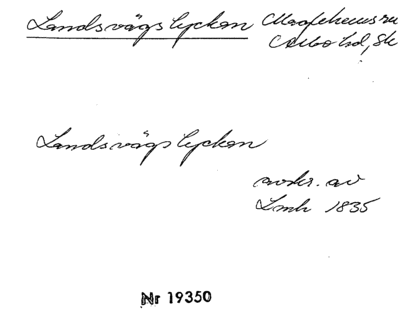 Landsvägslyckan
Albo hd, Sk
Landsvägslyckan
avskr. av
Lmk 1835
Nr 19350